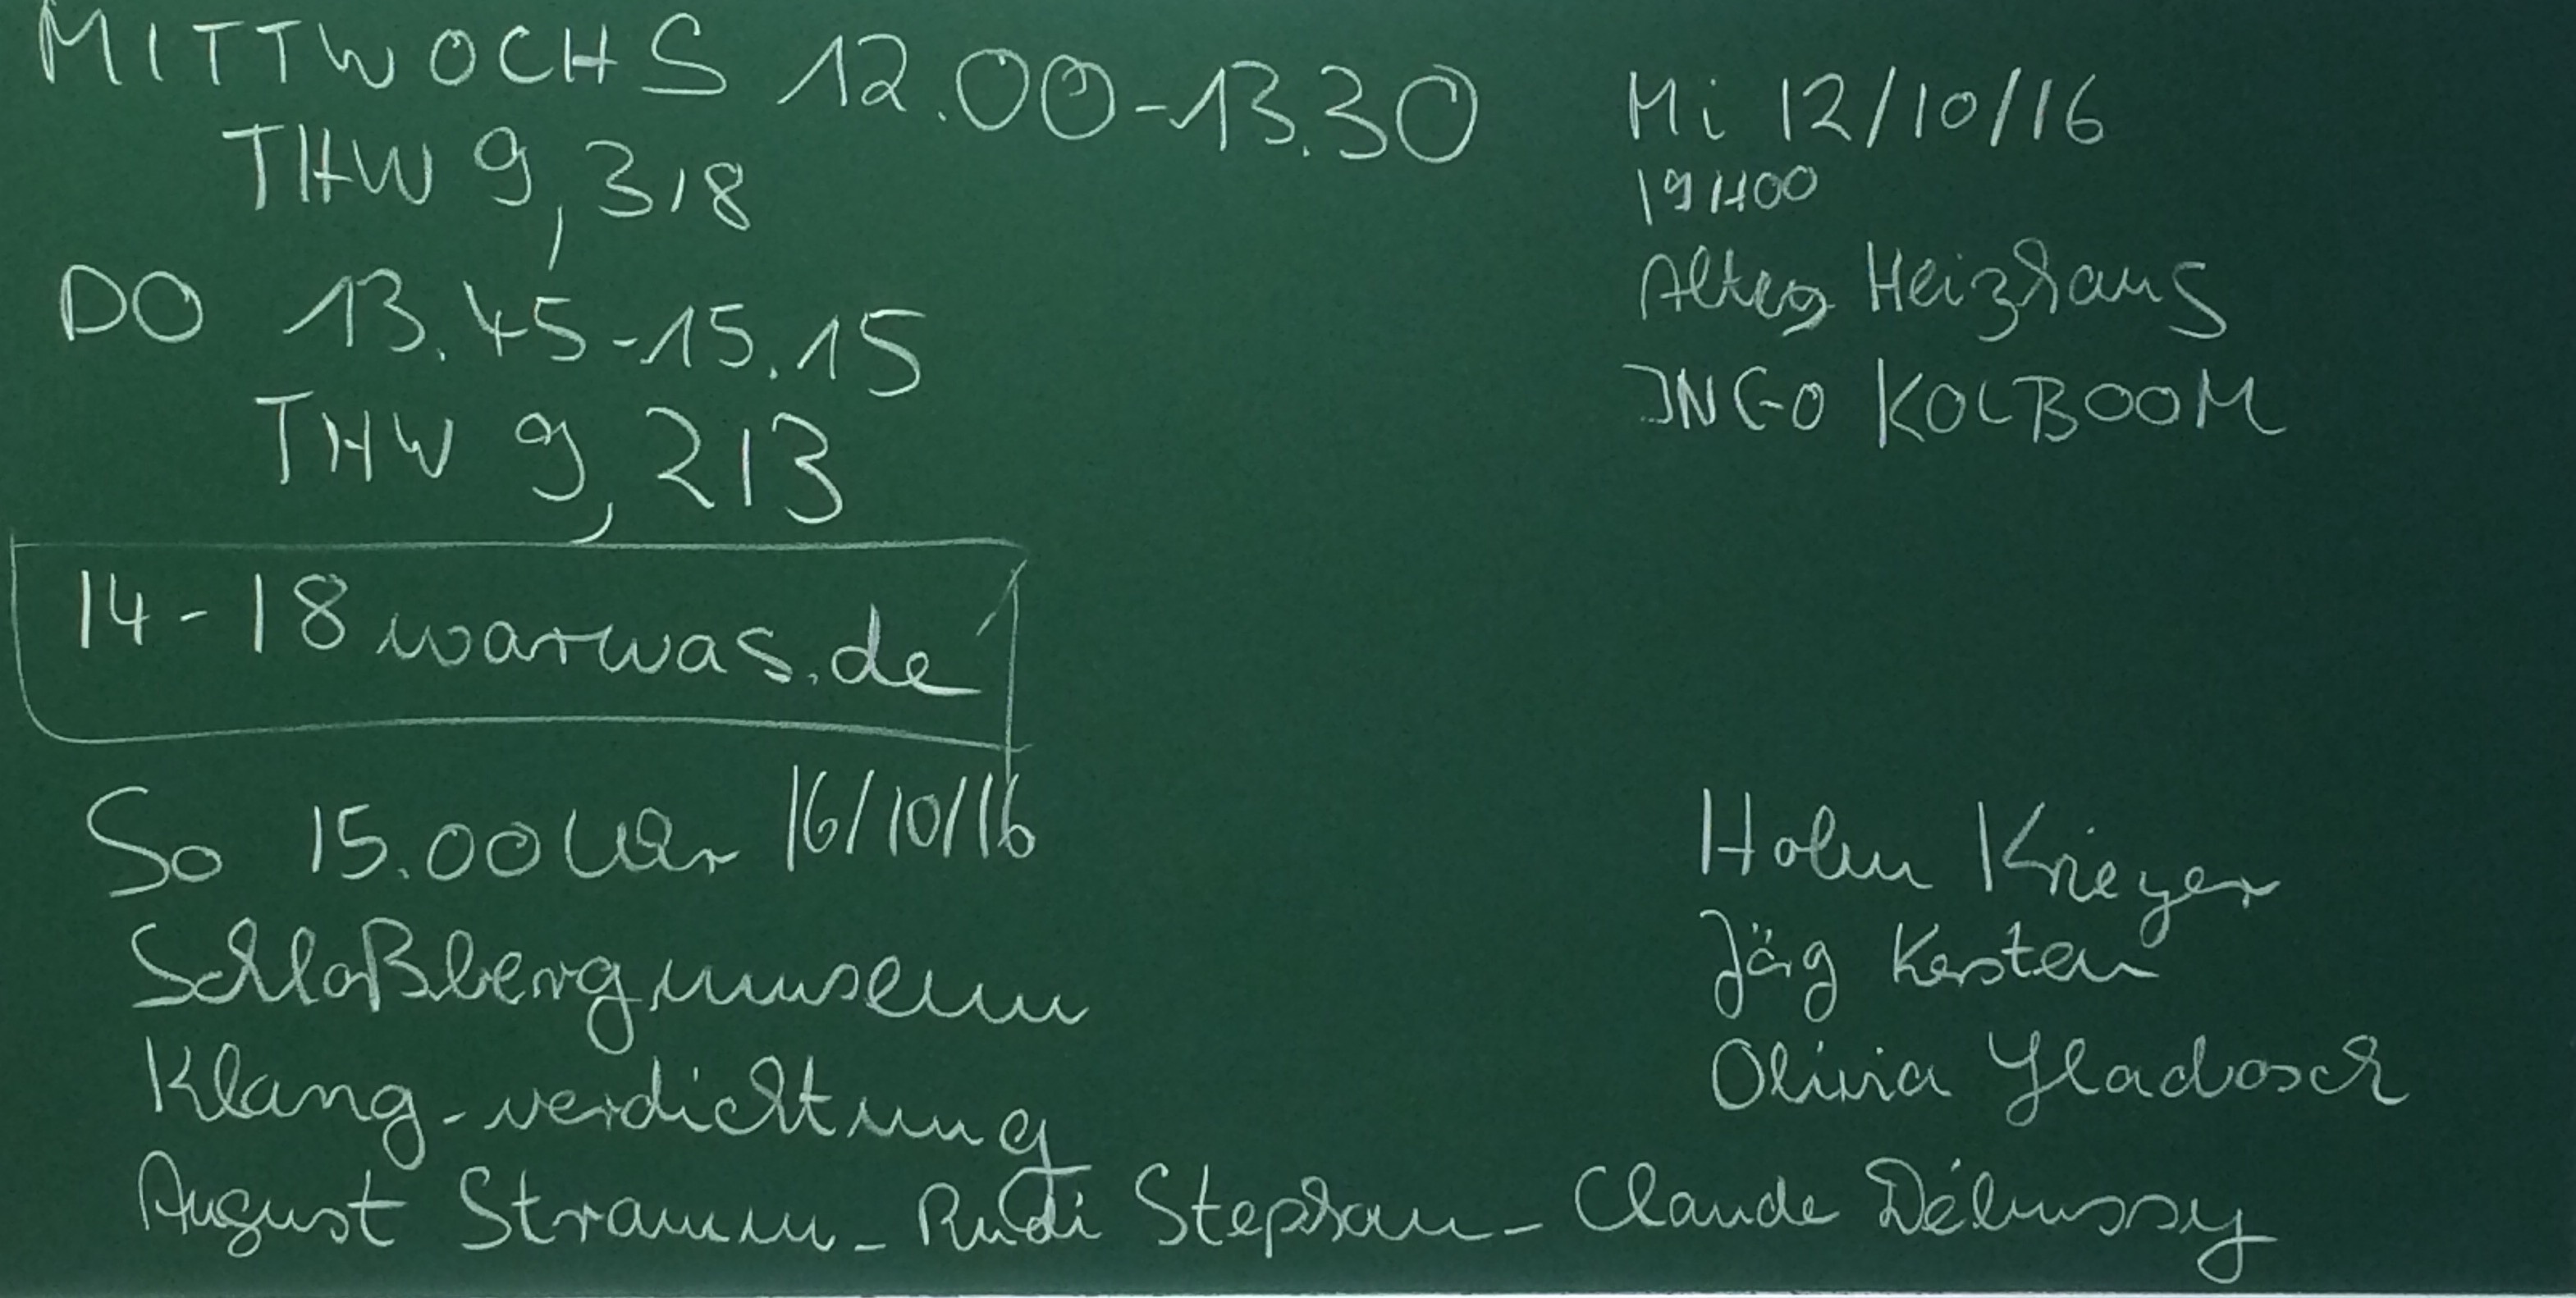 MITTWOCHS 12.00-13.30
THW 9, 318
DO 13.45-15.15
THW 9, 213
14-18warwas.de
So 15.00 Uhr 16/10/16
Schloßbergmuseum
Klang-verdichtung
August Stramm - Rudi Stephan - Claude Débussy
Mi 12/10/16
19H00
Altes Heizhaus
INGO KOLBOOM
Holm Krieger
Jörg Kersten
Olivia